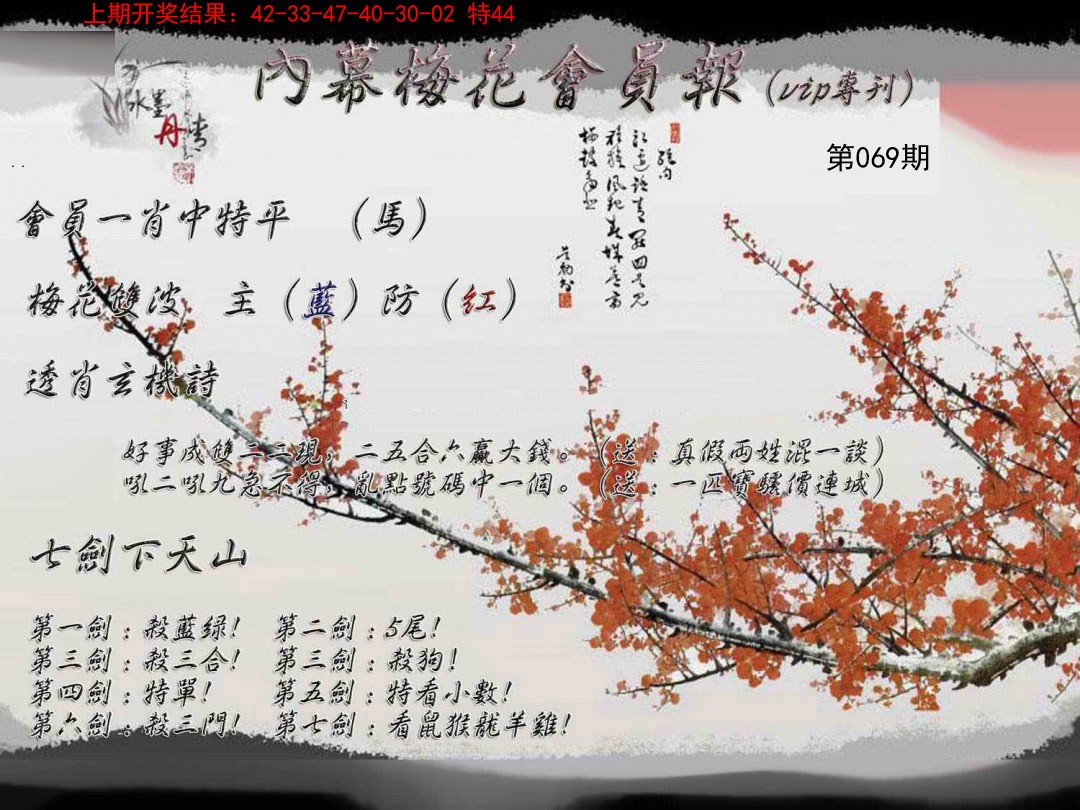 上期开奖结果：42-33-47-40-30-02 特44
內幕梅花會員報（vip專刊）
水墨
丹青
第069期
會員一肖中特平 （馬）
梅花雙波 主（藍）防（紅）
透肖玄機詩
好事成雙二二現，二五合六贏大錢。（送：真假両姓混一談）
吼二吼九急不得，亂點號碼中一個。（送：一匹寶驕價連城）
七劍下天山
第一劍：殺藍绿！ 第二劍：5尾！
第三劍：殺三合！ 第三劍：殺狗！
第四劍：特單！ 第五劍：特看小數！
第六劍：殺三門！ 第七劍：看鼠猴龍羊雞！